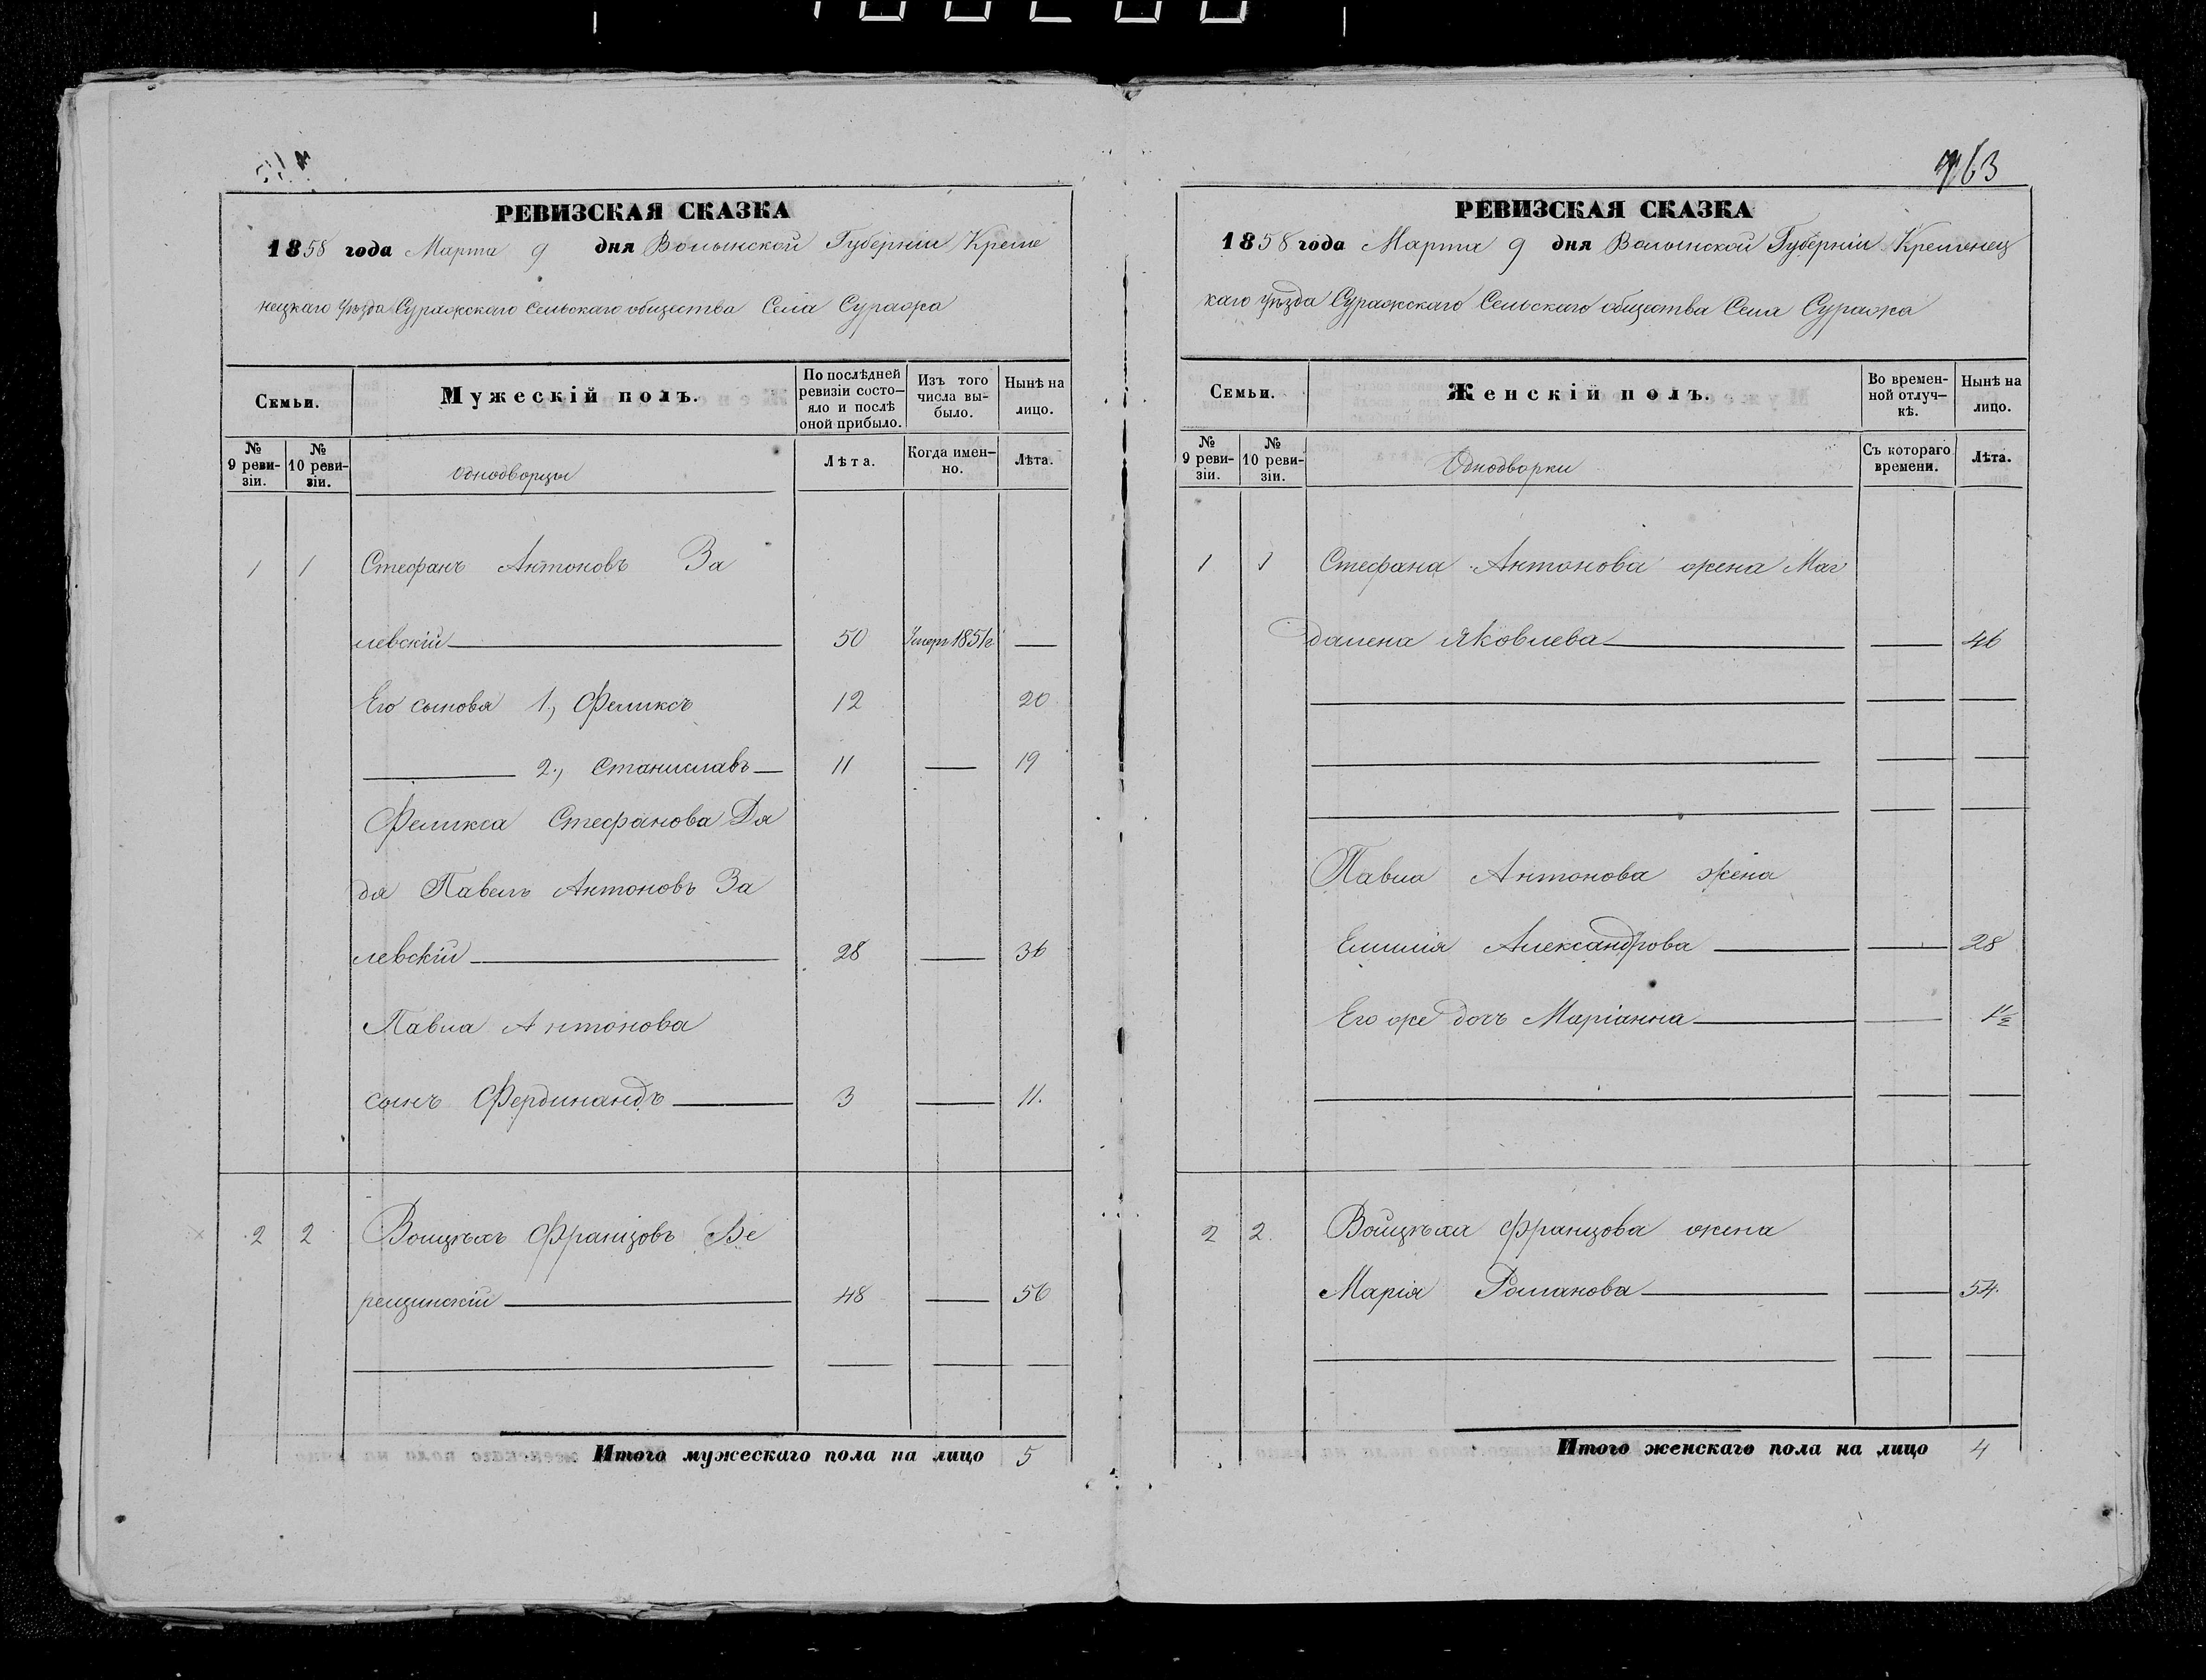 РЕВИЗСКАЯ СКАЗКА
1858 года Марта 9 дня Волынской Губерніи Креме
нецкаго уѣзда Суражскаго Сельскаго общества Села Суража
Семьи.
Мужескій полъ.
По послѣдней ревизіи состо-
яло и послѣ оной прибыло.
Изъ того числа вы-
было.
Нынѣ на лицо.
№ 9 реви-
зіи.
№ 10 реви-
зіи.
Однодворцы
Лѣта.
Когда имен-
но.
Лѣта.
1 1 Стефанъ Антоновъ За
левскій 50 Умеръ 1851г —
Его сыновя 1, Феликсъ 12 20
2, Станиславъ 11 — 19
Феликса Стефанова Дя
дя Павелъ Антоновъ За
левскій 28 — 36
Павла Антонова
сынъ Фердинандъ 3 — 11.
2 2 Войцѣхъ Францовъ Ве
рещинскій 48 — 56
Итого мужескаго пола на лицо 5
763
РЕВИЗСКАЯ СКАЗКА
1858 года Марта 9 дня Волынской Губерніи Кременец
каго уѣзда Суражскаго Сельскаго общества Села Суража
Семьи.
Женскій полъ.
Во времен-
ной отлуч-
кѣ.
Нынѣ на лицо.
№ 9 реви-
зіи.
№ 10 реви-
зіи.
Однодворки
Съ котораго времени.
Лѣта.
1 1 Стефана Антонова жена Маг
далена Яковлева — 46
Павла Антонова жена
Емилія Александрова — 28
Его же дочь Маріанна — 1½
2 2. Войцѣха Францова жена
Марія Романова — 54.
Итого женскаго пола на лицо 4